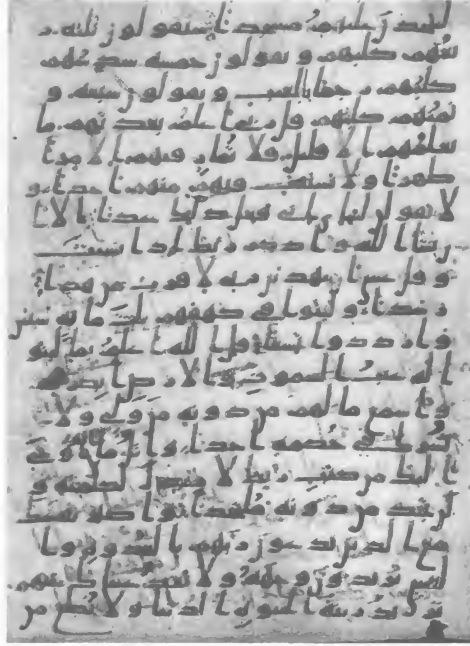 لنتخذن عليهم مسجدا سيقولون ثلثة ر
بعهم كلبهم و يقولون خمسة سدسهم
كلبهم رجما بالغيب و يقولون سبعة و
ثمنهم كلبهم قل ربي اعلم بعدتهم ما
يعلمهم الا قليل فلا تمار فيهم الا مرا
ظهرا ولا تستفت فيهم منهم احدا و
لا تقولن لشاي اني فاعل ذلك غدا الا ا
ن يشا الله واذكر ربك اذا نسيت
و قل عسى ان يهدين ربي لاقرب من هذا
رشدا و لبثوا في كهفهم ثلث مائة سنين
وازدادوا تسعا قل الله اعلم بما لبثو
ا له غيب السموت والارض ابصر به
واسمع ما لهم من دونه من ولي ولا
يشرك في حكمه احدا واتل ما اوحي
اليك من كتب ربك لا مبدل لكلمته و
لن تجد من دونه ملتحدا واصبر نفسك
مع الذين يدعون ربهم بالغدوة وا
لعشي يريدون وجهه ولا تعد عيناك عنهم
تريد زينة الحيوة الدنيا ولا تطع من